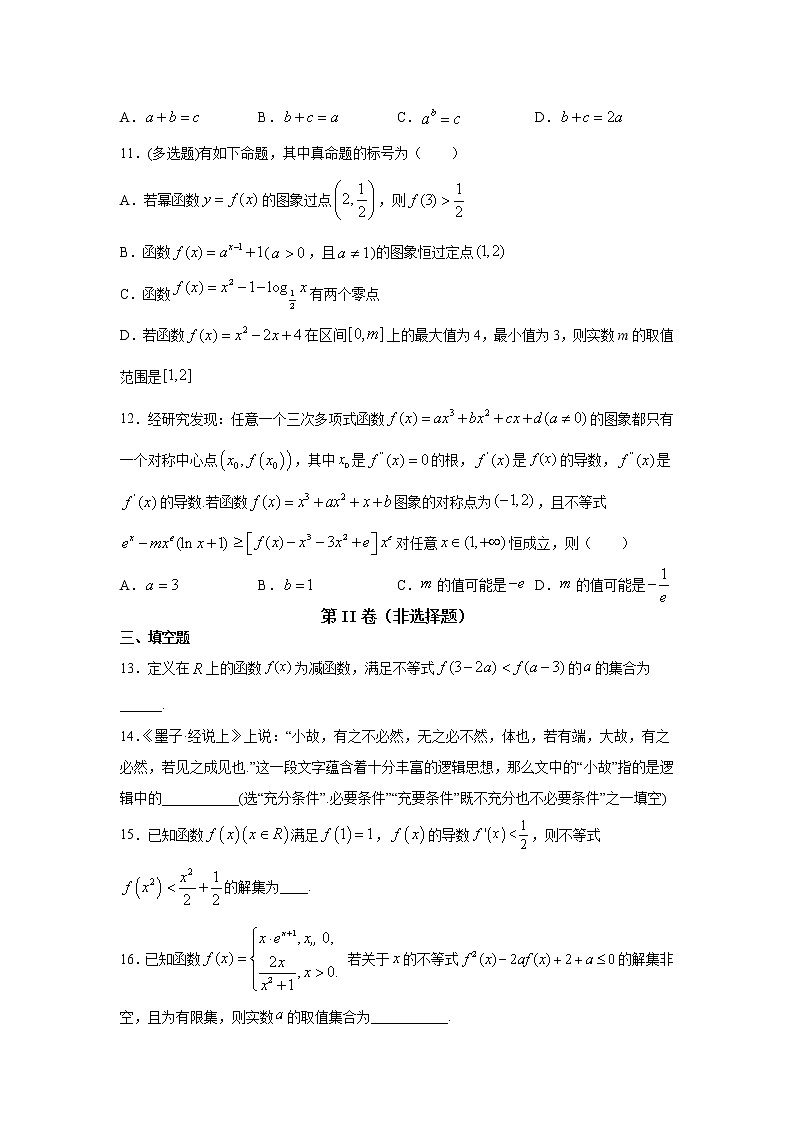 A．a + b = c B．b + c = a C．a^b = c D．b + c = 2a
11．(多选题)有如下命题，其中真命题的标号为（　　）
A．若幂函数 y = f(x) 的图象过点(2, 1/2)，则 f(3) > 1/2
B．函数 f(x) = a^(x−1) +1( a > 0 ，且 a ≠ 1)的图象恒过定点(1, 2)
C．函数 f(x) = x² −1−log_(1/2) x 有两个零点
D．若函数 f(x) = x² − 2x + 4 在区间[0, m]上的最大值为 4，最小值为 3，则实数 m 的取值
范围是[1,2]
12．经研究发现：任意一个三次多项式函数 f(x) = ax³ + bx² + cx + d(a ≠ 0) 的图象都只有
一个对称中心点(x₀, f(x₀))，其中 x₀ 是 f''(x) = 0 的根， f'(x) 是 f(x) 的导数， f''(x) 是
f'(x) 的导数.若函数 f(x) = x³ + ax² + x + b 图象的对称点为 (−1, 2) ，且不等式
e^x − mx^e(ln x +1) ≥ [f(x) − x³ − 3x² + e] x^e 对任意 x ∈ (1, +∞) 恒成立，则（　　）
A．a = 3 B．b = 1 C．m 的值可能是 −e D．m 的值可能是 −1/e
第 II 卷（非选择题）
三、填空题
13．定义在 R 上的函数 f(x) 为减函数，满足不等式 f(3 − 2a) < f(a − 3) 的 a 的集合为
______.
14.《墨子·经说上》上说：“小故，有之不必然，无之必不然，体也，若有端，大故，有之
必然，若见之成见也.”这一段文字蕴含着十分丰富的逻辑思想，那么文中的“小故”指的是逻
辑中的___________(选“充分条件”.必要条件”“充要条件”既不充分也不必要条件”之一填空)
15．已知函数 f(x)(x ∈ R) 满足 f(1) = 1， f(x) 的导数 f'(x) < 1/2 ，则不等式
f(x²) < x²/2 + 1/2 的解集为____.
16．已知函数 f(x) = { x·e^(x+1), x„ 0, 2x/(x² + 1), x > 0. 若关于 x 的不等式 f²(x) − 2af(x) + 2 + a ≤ 0 的解集非
空，且为有限集，则实数 a 的取值集合为___________.